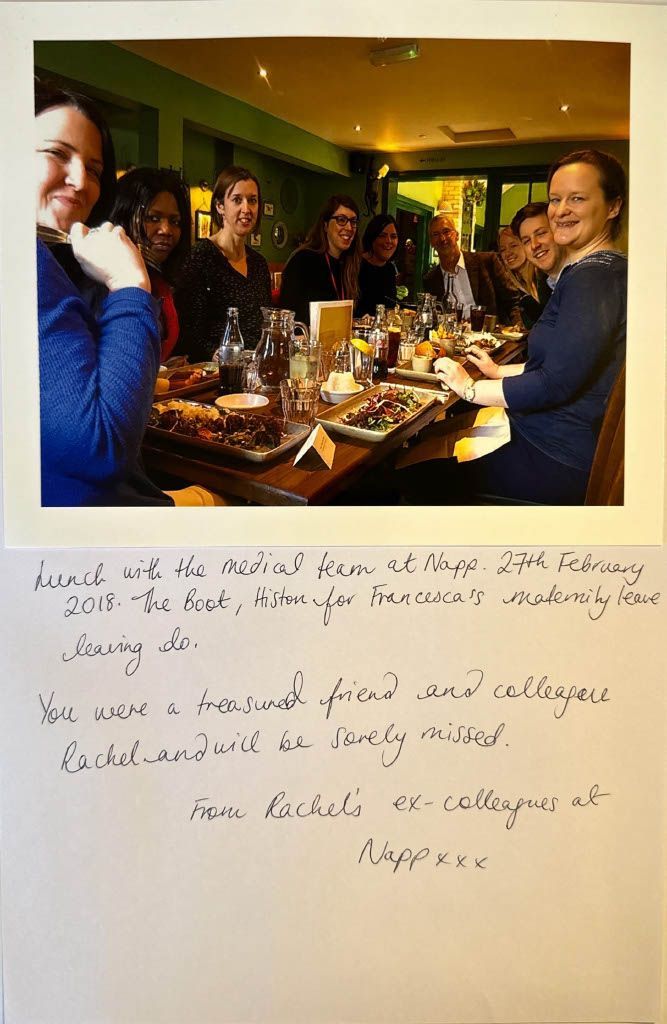 Lunch with the medical team at Napp. 27th February
2018. The Boot, Histon for Francesca's maternity leave
leaving do.
You were a treasured friend and colleague
Rachel and will be sorely missed.
From Rachel's ex-colleagues at
Napp xxx